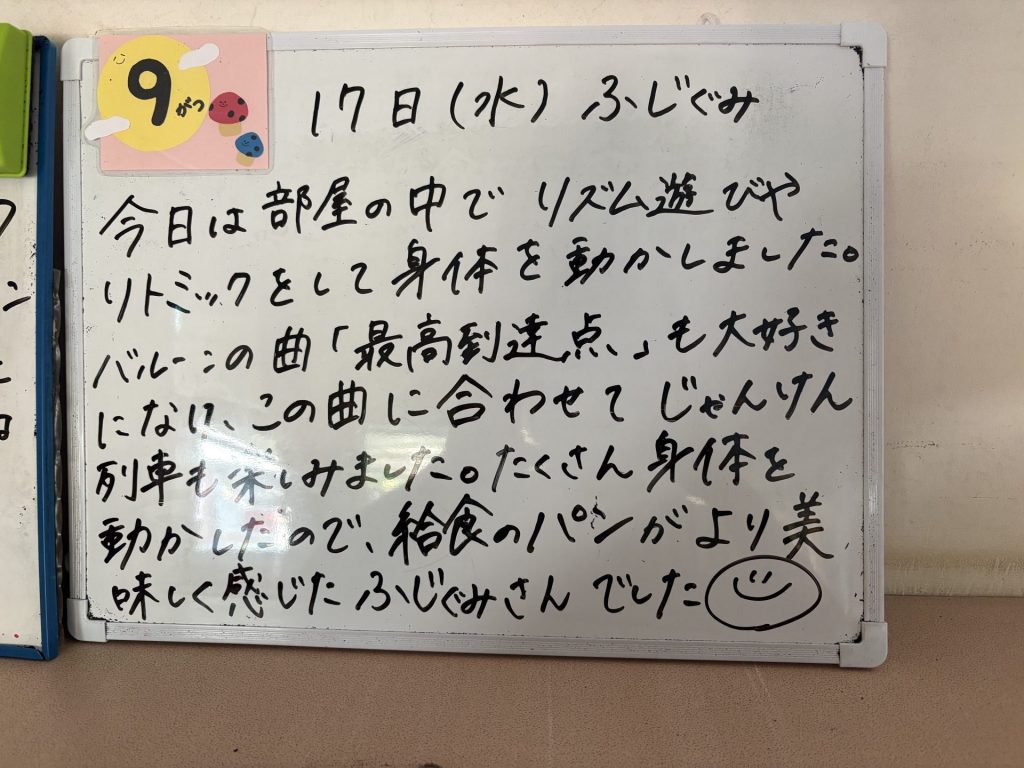 9がつ
17日(水) ふじぐみ
今日は部屋の中で リズム遊びや
リトミックをして身体を動かしました。
バルーンの曲「最高到達点」も大好き
になり、この曲に合わせて じゃんけん
列車も楽しみました。たくさん身体を
動かしたので、給食のパンがより美
味しく感じた ふじぐみさん でした